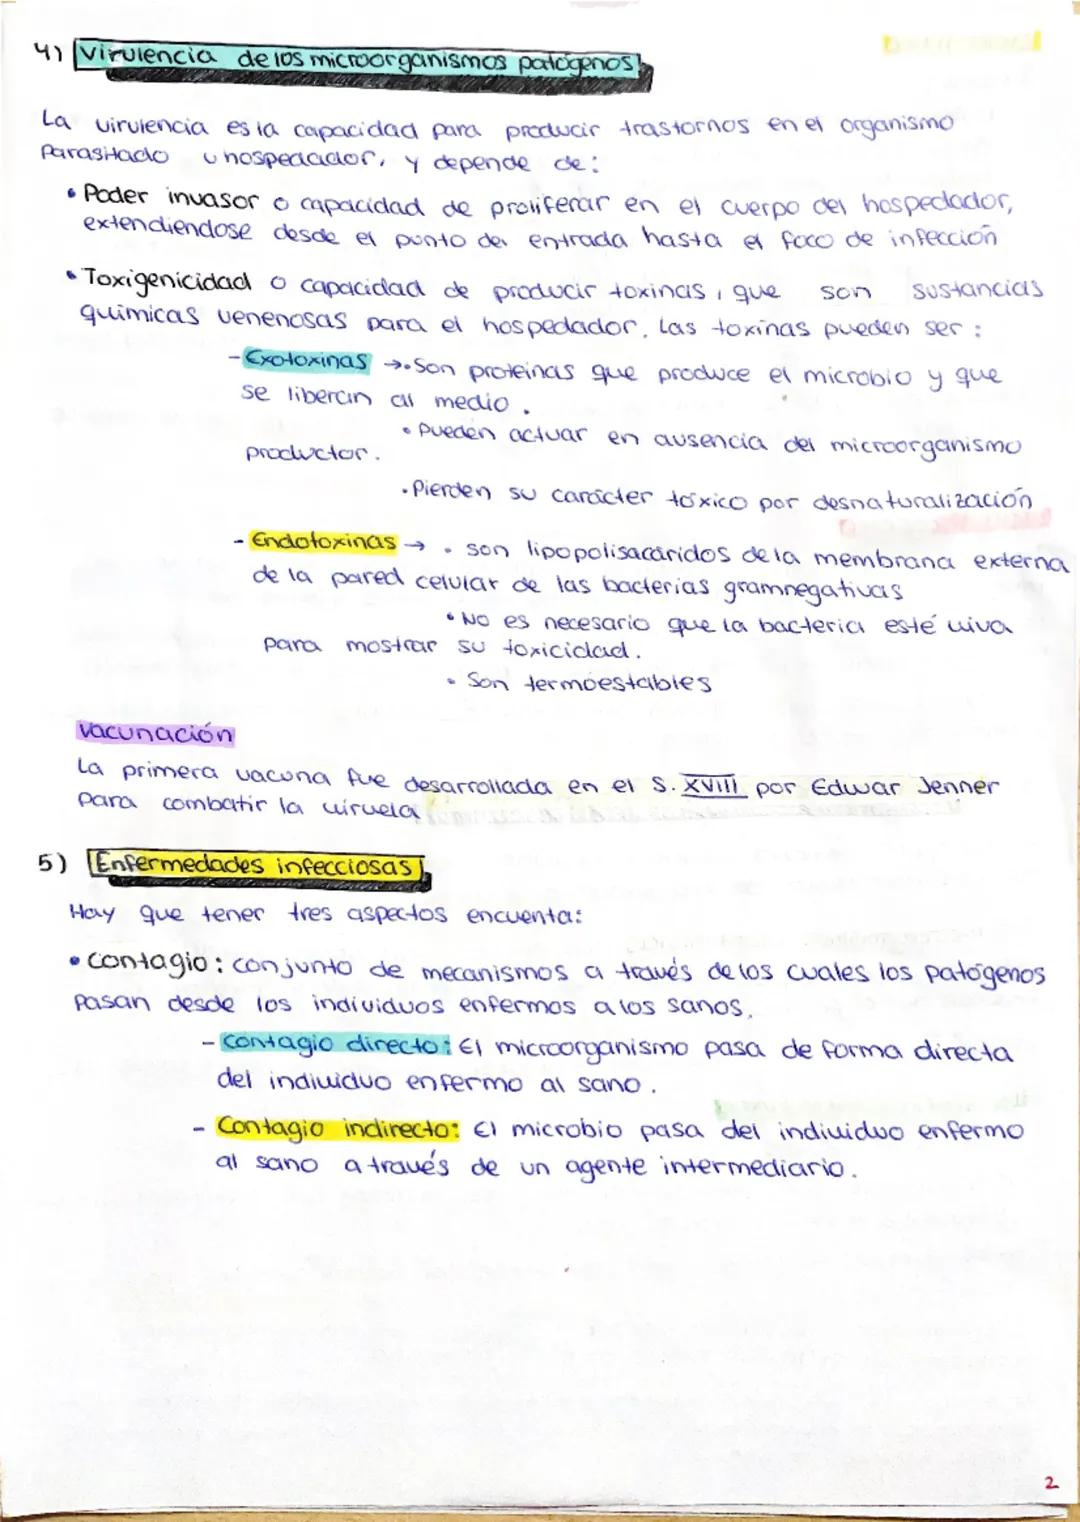 4) Virulencia de los microorganismos patógenos
La virulencia es la capacidad para producir trastornos en el organismo
parasitado u hospedador, y depende de:
• Poder invasor o capacidad de proliferar en el cuerpo del hospedador,
extendiendose desde el punto de entrada hasta el foco de infección
• Toxigenicidad o capacidad de producir toxinas, que son sustancias
químicas venenosas para el hospedador. Las toxinas pueden ser:
- Exotoxinas →• Son proteinas que produce el microbio y que
se liberan al medio.
• Pueden actuar en ausencia del microorganismo
productor.
• Pierden su carácter tóxico por desnaturalización
- Endotoxinas → • son lipopolisacáridos de la membrana externa
de la pared celular de las bacterias gramnegativas
• No es necesario que la bacteria esté viva
para mostrar su toxicidad.
• Son termoestables
Vacunación
La primera vacuna fue desarrollada en el S. XVIII por Edwar Jenner
para combatir la viruela
5) Enfermedades infecciosas
Hay que tener tres aspectos encuenta:
• Contagio: conjunto de mecanismos a través de los cuales los patógenos
pasan desde los individuos enfermos a los sanos.
- Contagio directo: El microorganismo pasa de forma directa
del individuo enfermo al sano.
- Contagio indirecto: El microbio pasa del individuo enfermo
al sano a través de un agente intermediario.
2